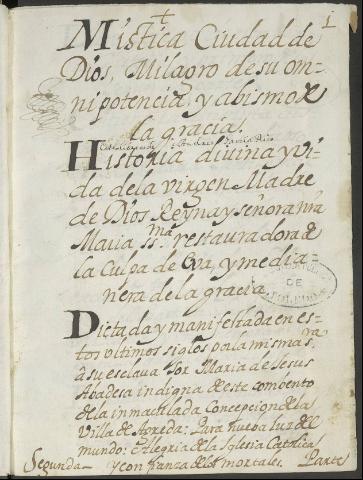 1
Mistica Ciudad de
Dios, Milagro de su om-
nipotencia, y abismo de
la gracia.
Historia divina, y vi-
da de la virgen Madre
de Dios Reyna y señora nra
Maria SSma. restauradora de
la Culpa de Eva, y media-
nera de la gracia.
Dictada y manifestada en es-
tos ultimos siglos por la misma Sra
a su esclava Sor Maria de Jesus
Abadesa indigna de este combento
de la inmaculada Concepcion de la
Villa de Agreda: Para nueba luz del
mundo: Alegria de la Iglesia Catolica
y confianza de los mortales.
Segunda Parte
DE